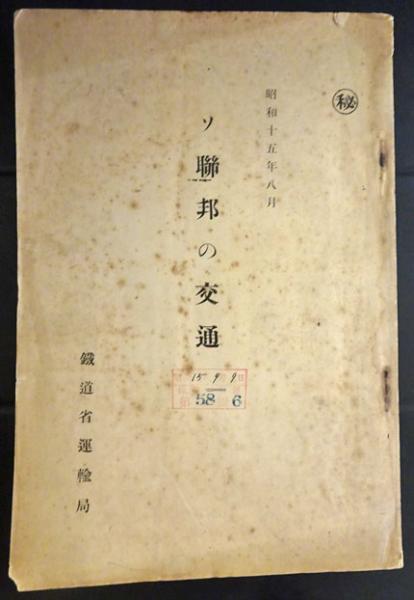 ㊙
昭和十五年八月
ソ聯邦の交通
15 9 9
58 6
鐵道省運輸局